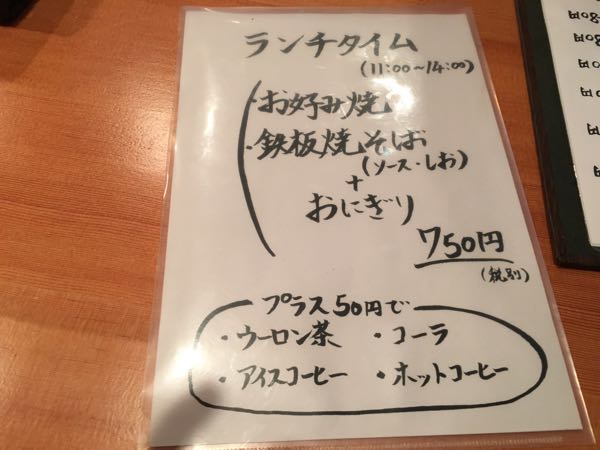 ランチタイム
(11:00~14:00)
お好み焼
・鉄板焼そば
(ソース・しお)
+
おにぎり
750円
(税別)
プラス50円で
・ウーロン茶 ・コーラ
・アイスコーヒー ・ホットコーヒー